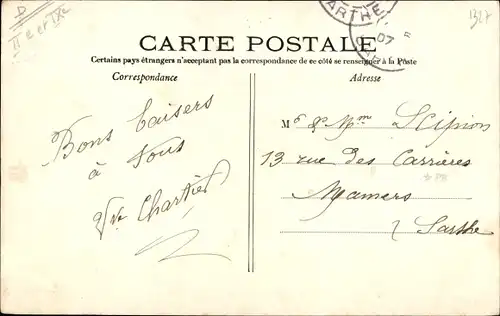 D
II e et IXe
1327
SARTHE
07
CARTE POSTALE
Certains pays étrangers n'acceptant pas la correspondance de ce côté se renseigner à la Poste
Correspondance
Adresse
Bons baisers
à Vous
Vve Chartier
Mr & Mme Scipion
13 rue des Carrières
Mamers
Sarthe